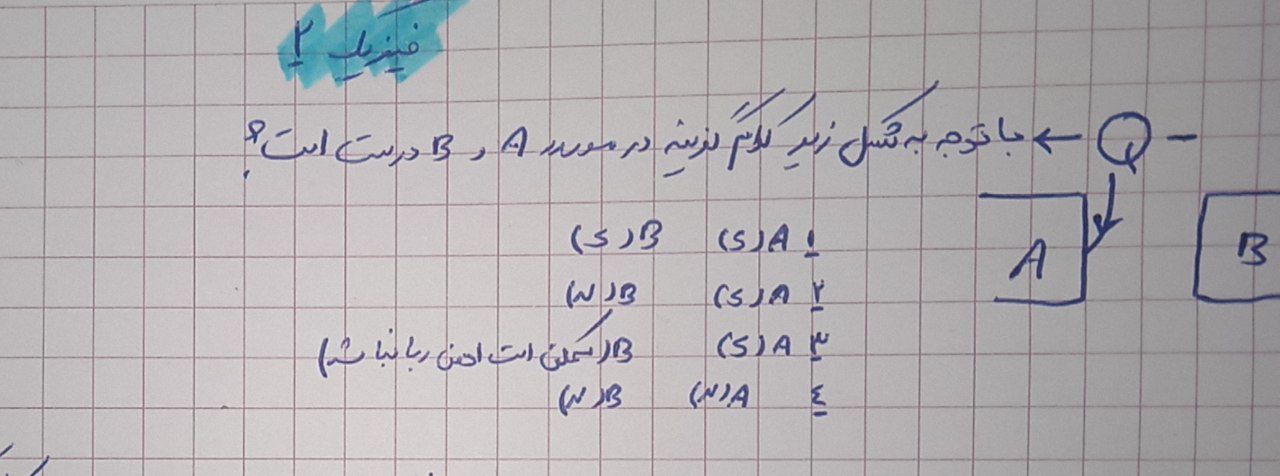 فیزیک ۲
با توجه به شکل زیر کدام گزینه در مورد A و B درست است؟
← Q -
A B
۱ A(S) B(S)
۲ A(S) B(N)
۳ A(S) B(ممکن است آهن ربا نباشد)
۴ A(N) B(N)